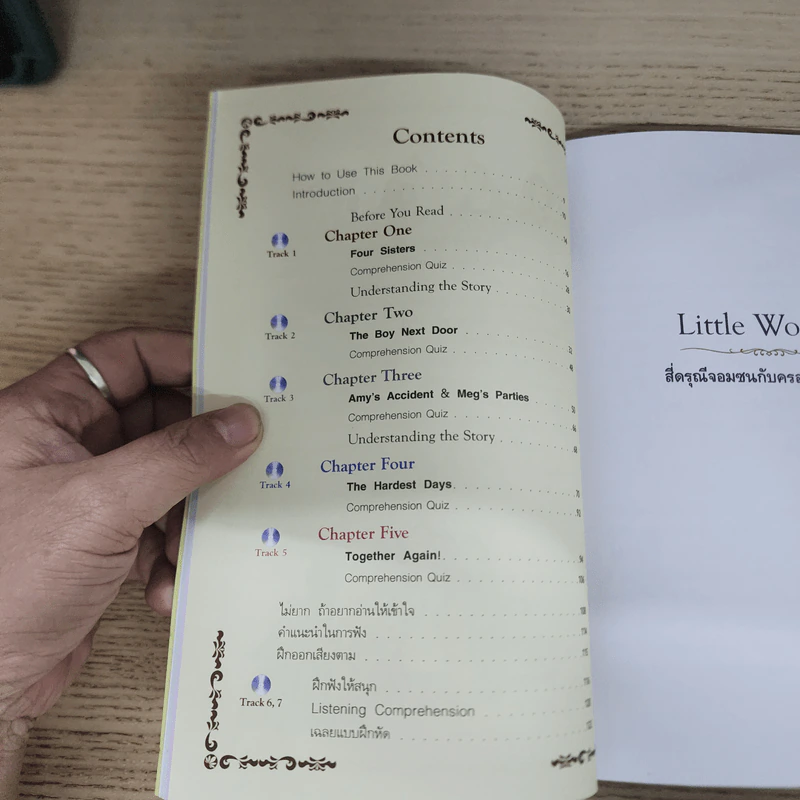 Contents
How to Use This Book
Introduction
Before You Read
Track 1
Chapter One
Four Sisters
Comprehension Quiz
Understanding the Story
Track 2
Chapter Two
The Boy Next Door
Comprehension Quiz
Track 3
Chapter Three
Amy's Accident & Meg's Parties
Comprehension Quiz
Understanding the Story
Track 4
Chapter Four
The Hardest Days
Comprehension Quiz
Track 5
Chapter Five
Together Again!
Comprehension Quiz
ไม่ยาก ถ้าอยากอ่านให้เข้าใจ
คำแนะนำในการฟัง
ฝึกออกเสียงตาม
Track 6, 7
ฝึกฟังให้สนุก
Listening Comprehension
เฉลยแบบฝึกหัด
Little Wo
สี่ดรุณีจอมซนกับครอ